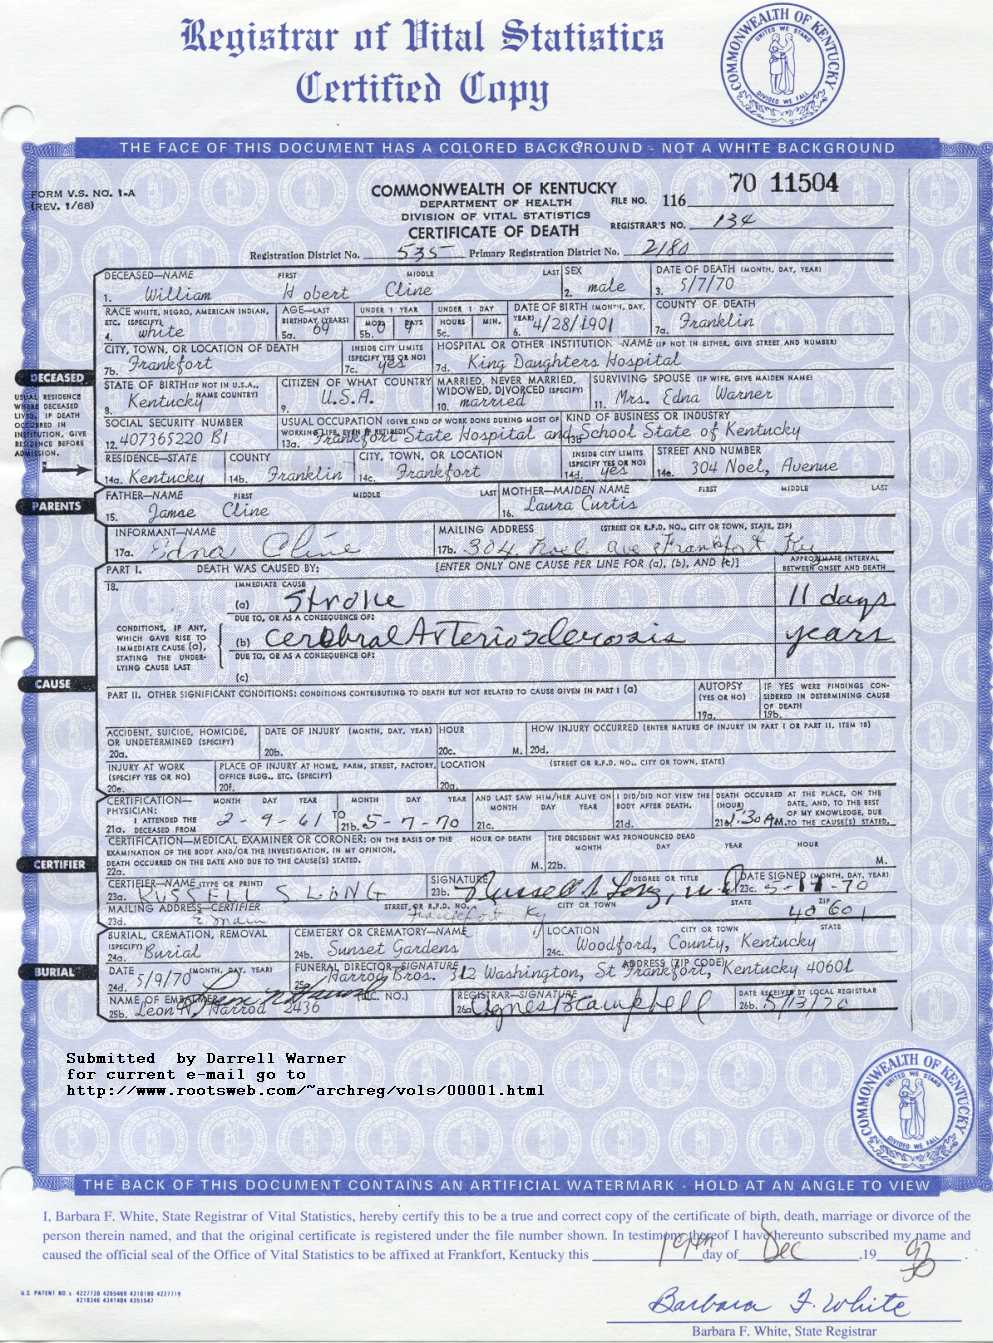 Registrar of Vital Statistics
Certified Copy
COMMONWEALTH OF KENTUCKY
UNITED WE STAND
DIVIDED WE FALL
THE FACE OF THIS DOCUMENT HAS A COLORED BACKGROUND - NOT A WHITE BACKGROUND
FORM V.S. NO. 1-A
(REV. 1/68)
COMMONWEALTH OF KENTUCKY
DEPARTMENT OF HEALTH
DIVISION OF VITAL STATISTICS
CERTIFICATE OF DEATH
FILE NO. 116 70 11504
REGISTRAR'S NO. 134
Registration District No. 535 Primary Registration District No. 2180
DECEASED—NAME FIRST MIDDLE LAST SEX DATE OF DEATH (MONTH, DAY, YEAR)
1. William Hobert Cline 2. male 3. 5/7/70
RACE WHITE, NEGRO, AMERICAN INDIAN, ETC. (SPECIFY) AGE—LAST BIRTHDAY (YEARS) UNDER 1 YEAR UNDER 1 DAY DATE OF BIRTH (MONTH, DAY, YEAR) COUNTY OF DEATH
4. white 5a. 69 5b. MOS. 0 DAYS 9 5c. HOURS MIN. 6. 4/28/1901 7a. Franklin
CITY, TOWN, OR LOCATION OF DEATH INSIDE CITY LIMITS (SPECIFY YES OR NO) HOSPITAL OR OTHER INSTITUTION - NAME (IF NOT IN EITHER, GIVE STREET AND NUMBER)
7b. Frankfort 7c. yes 7d. King Daughters Hospital
DECEASED
USUAL RESIDENCE WHERE DECEASED LIVED. IF DEATH OCCURRED IN INSTITUTION, GIVE RESIDENCE BEFORE ADMISSION.
STATE OF BIRTH (IF NOT IN U.S.A., NAME COUNTRY) CITIZEN OF WHAT COUNTRY MARRIED, NEVER MARRIED, WIDOWED, DIVORCED (SPECIFY) SURVIVING SPOUSE (IF WIFE, GIVE MAIDEN NAME)
8. Kentucky 9. U.S.A. 10. married 11. Mrs. Edna Warner
SOCIAL SECURITY NUMBER USUAL OCCUPATION (GIVE KIND OF WORK DONE DURING MOST OF WORKING LIFE, EVEN IF RETIRED) KIND OF BUSINESS OR INDUSTRY
12. 407365220 B1 13a. Frankfort State Hospital and School State of Kentucky
RESIDENCE—STATE COUNTY CITY, TOWN, OR LOCATION INSIDE CITY LIMITS (SPECIFY YES OR NO) STREET AND NUMBER
14a. Kentucky 14b. Franklin 14c. Frankfort 14d. yes 14e. 304 Noel, Avenue
PARENTS
FATHER—NAME FIRST MIDDLE LAST MOTHER—MAIDEN NAME FIRST MIDDLE LAST
15. Jamse Cline 16. Laura Curtis
INFORMANT—NAME MAILING ADDRESS (STREET OR R.F.D. NO., CITY OR TOWN, STATE, ZIP)
17a. Edna Cline 17b. 304 Noel ave Frankfort Ky
PART I. DEATH WAS CAUSED BY: [ENTER ONLY ONE CAUSE PER LINE FOR (a), (b), AND (c)] APPROXIMATE INTERVAL BETWEEN ONSET AND DEATH
18. IMMEDIATE CAUSE
(a) Stroke 11 days
DUE TO, OR AS A CONSEQUENCE OF:
CONDITIONS, IF ANY, WHICH GAVE RISE TO IMMEDIATE CAUSE (a), STATING THE UNDERLYING CAUSE LAST
(b) Cerebral Arteriosclerosis years
DUE TO, OR AS A CONSEQUENCE OF:
(c)
CAUSE
PART II. OTHER SIGNIFICANT CONDITIONS: CONDITIONS CONTRIBUTING TO DEATH BUT NOT RELATED TO CAUSE GIVEN IN PART I (a) AUTOPSY (YES OR NO) 19a. IF YES WERE FINDINGS CONSIDERED IN DETERMINING CAUSE OF DEATH 19b.
ACCIDENT, SUICIDE, HOMICIDE, OR UNDETERMINED (SPECIFY) 20a. DATE OF INJURY (MONTH, DAY, YEAR) 20b. HOUR 20c. M. HOW INJURY OCCURRED (ENTER NATURE OF INJURY IN PART I OR PART II, ITEM 18) 20d.
INJURY AT WORK (SPECIFY YES OR NO) 20e. PLACE OF INJURY AT HOME, FARM, STREET, FACTORY, OFFICE BLDG., ETC. (SPECIFY) 20f. LOCATION (STREET OR R.F.D. NO., CITY OR TOWN, STATE) 20g.
CERTIFICATION—PHYSICIAN: I ATTENDED THE DECEASED FROM MONTH DAY YEAR TO MONTH DAY YEAR AND LAST SAW HIM/HER ALIVE ON MONTH DAY YEAR I DID/DID NOT VIEW THE BODY AFTER DEATH. DEATH OCCURRED AT THE PLACE, ON THE DATE, AND, TO THE BEST OF MY KNOWLEDGE, DUE TO THE CAUSE(S) STATED. (HOUR)
21a. 2-9-61 21b. 5-7-70 21c. 21d. 21e. 1:30 A.M.
CERTIFIER
CERTIFICATION—MEDICAL EXAMINER OR CORONER: ON THE BASIS OF THE EXAMINATION OF THE BODY AND/OR THE INVESTIGATION, IN MY OPINION, DEATH OCCURRED ON THE DATE AND DUE TO THE CAUSE(S) STATED. HOUR OF DEATH THE DECEDENT WAS PRONOUNCED DEAD MONTH DAY YEAR HOUR
22a. M. 22b. M.
CERTIFIER—NAME (TYPE OR PRINT) SIGNATURE DEGREE OR TITLE DATE SIGNED (MONTH, DAY, YEAR)
23a. RUSSELL S LONG 23b. Russell S Long, M.D. 23c. 5-11-70
MAILING ADDRESS—CERTIFIER STREET OR R.F.D. NO. CITY OR TOWN STATE ZIP
23d. E main Frankfort Ky 40601
BURIAL
BURIAL, CREMATION, REMOVAL (SPECIFY) CEMETERY OR CREMATORY—NAME LOCATION CITY OR TOWN STATE
24a. Burial 24b. Sunset Gardens 24c. Woodford, County, Kentucky
DATE (MONTH, DAY, YEAR) FUNERAL DIRECTOR—SIGNATURE ADDRESS (ZIP CODE)
24d. 5/9/70 25a. Harrod Bros. 312 Washington, St Frankfort, Kentucky 40601
NAME OF EMBALMER (LIC. NO.) REGISTRAR—SIGNATURE DATE RECEIVED BY LOCAL REGISTRAR
25b. Leon N. Harrod 2436 26a. Agnes B Campbell 26b. 5/13/70
Submitted by Darrell Warner
for current e-mail go to
http://www.rootsweb.com/~archreg/vols/00001.html
COMMONWEALTH OF KENTUCKY
DIVIDED WE FALL
THE BACK OF THIS DOCUMENT CONTAINS AN ARTIFICIAL WATERMARK - HOLD AT AN ANGLE TO VIEW
I, Barbara F. White, State Registrar of Vital Statistics, hereby certify this to be a true and correct copy of the certificate of birth, death, marriage or divorce of the
person therein named, and that the original certificate is registered under the file number shown. In testimony thereof I have hereunto subscribed my name and
caused the official seal of the Office of Vital Statistics to be affixed at Frankfort, Kentucky this 19th day of Dec ,19 .
U.S. PATENT NO.s 4227720 4265469 4210190 4227719
4210346 4341404 4351547
Barbara F. White
Barbara F. White, State Registrar